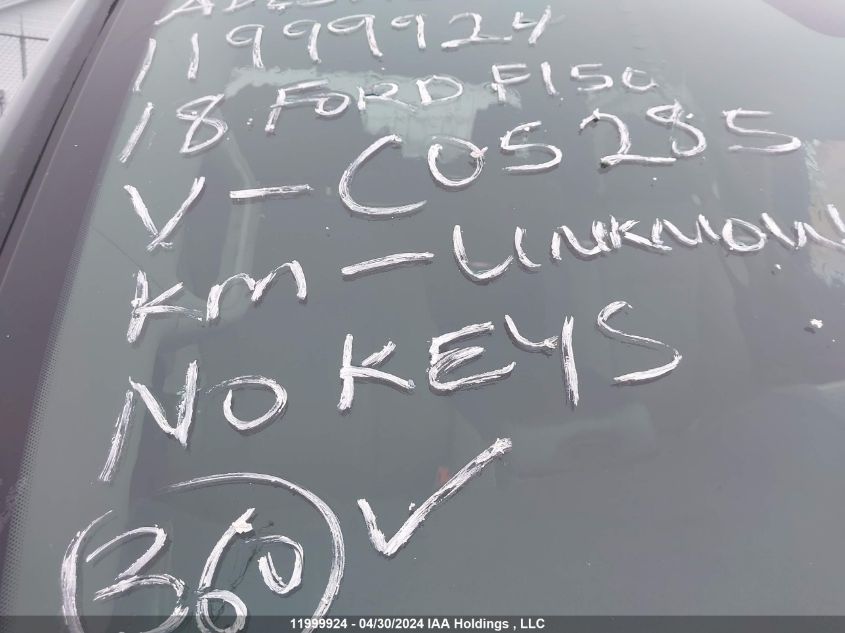 11999924
18 FORD F150
V-C05285
KM-UNKNOWN
NO KEYS
360 ✓
11999924 - 04/30/2024 IAA Holdings , LLC